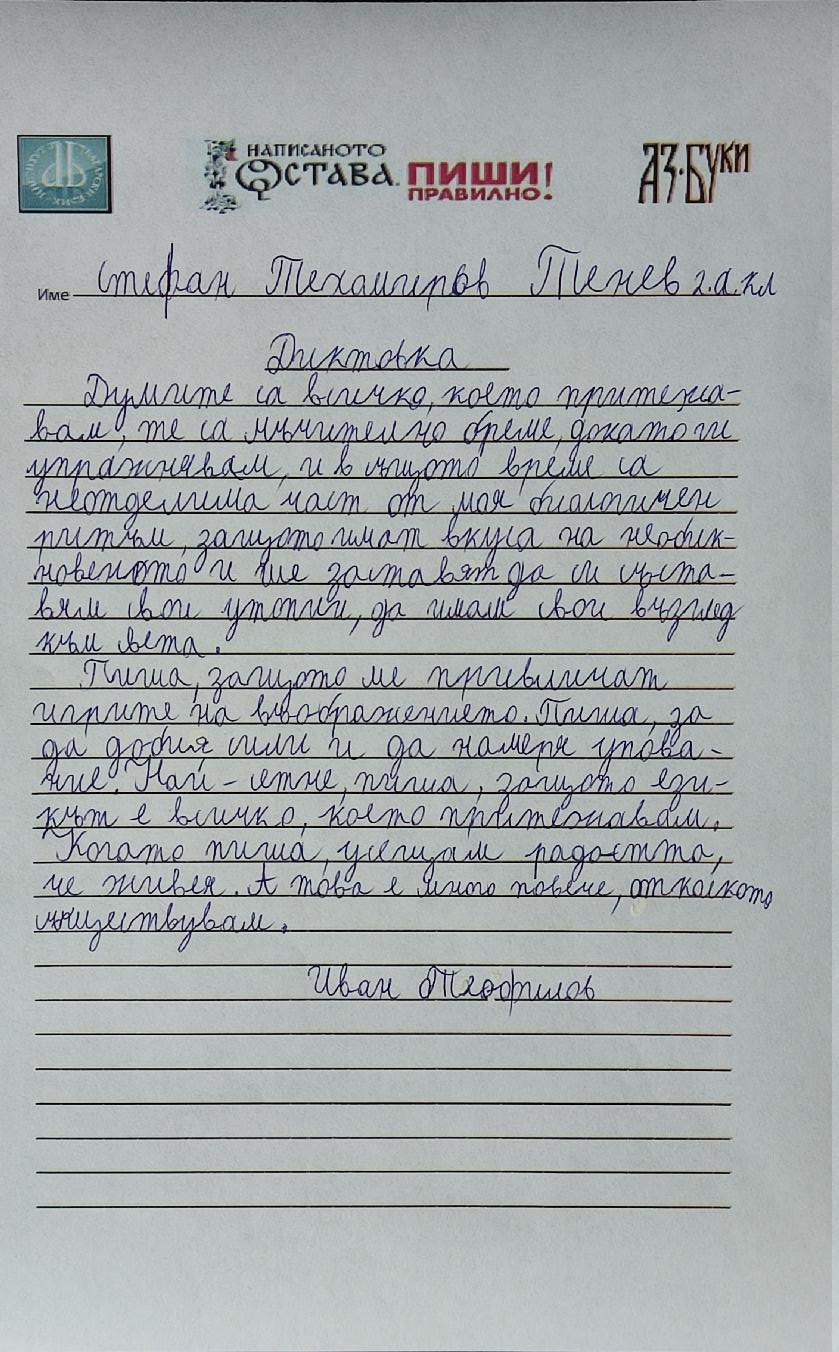 НАПИСАНОТО
ОСТАВА. ПИШИ
ПРАВИЛНО!
АЗ·БУКИ
Име Стефан Тенев 2.а.кл
Диктовка
Думите са всичко, което притежа-
вам, те са мъчително бреме, докато ги
упражнявам, и в същото време са
неотделима част от моя биологичен
ритъм, защото имат вкуса на необик-
новеното и ме заставят да си съста-
вям свои утопии, да имам свои възглед
към света.
Пиша, защото ме привличат
игрите на въображението. Пиша, за
да добия, сили и да намеря упова-
ние. Най-сетне, пиша, защото ези-
кът е всичко, което притежавам.
Когато пиша, усещам радостта,
че живея. А това е много повече, отколкото
съществувам.
Иван Теофилов